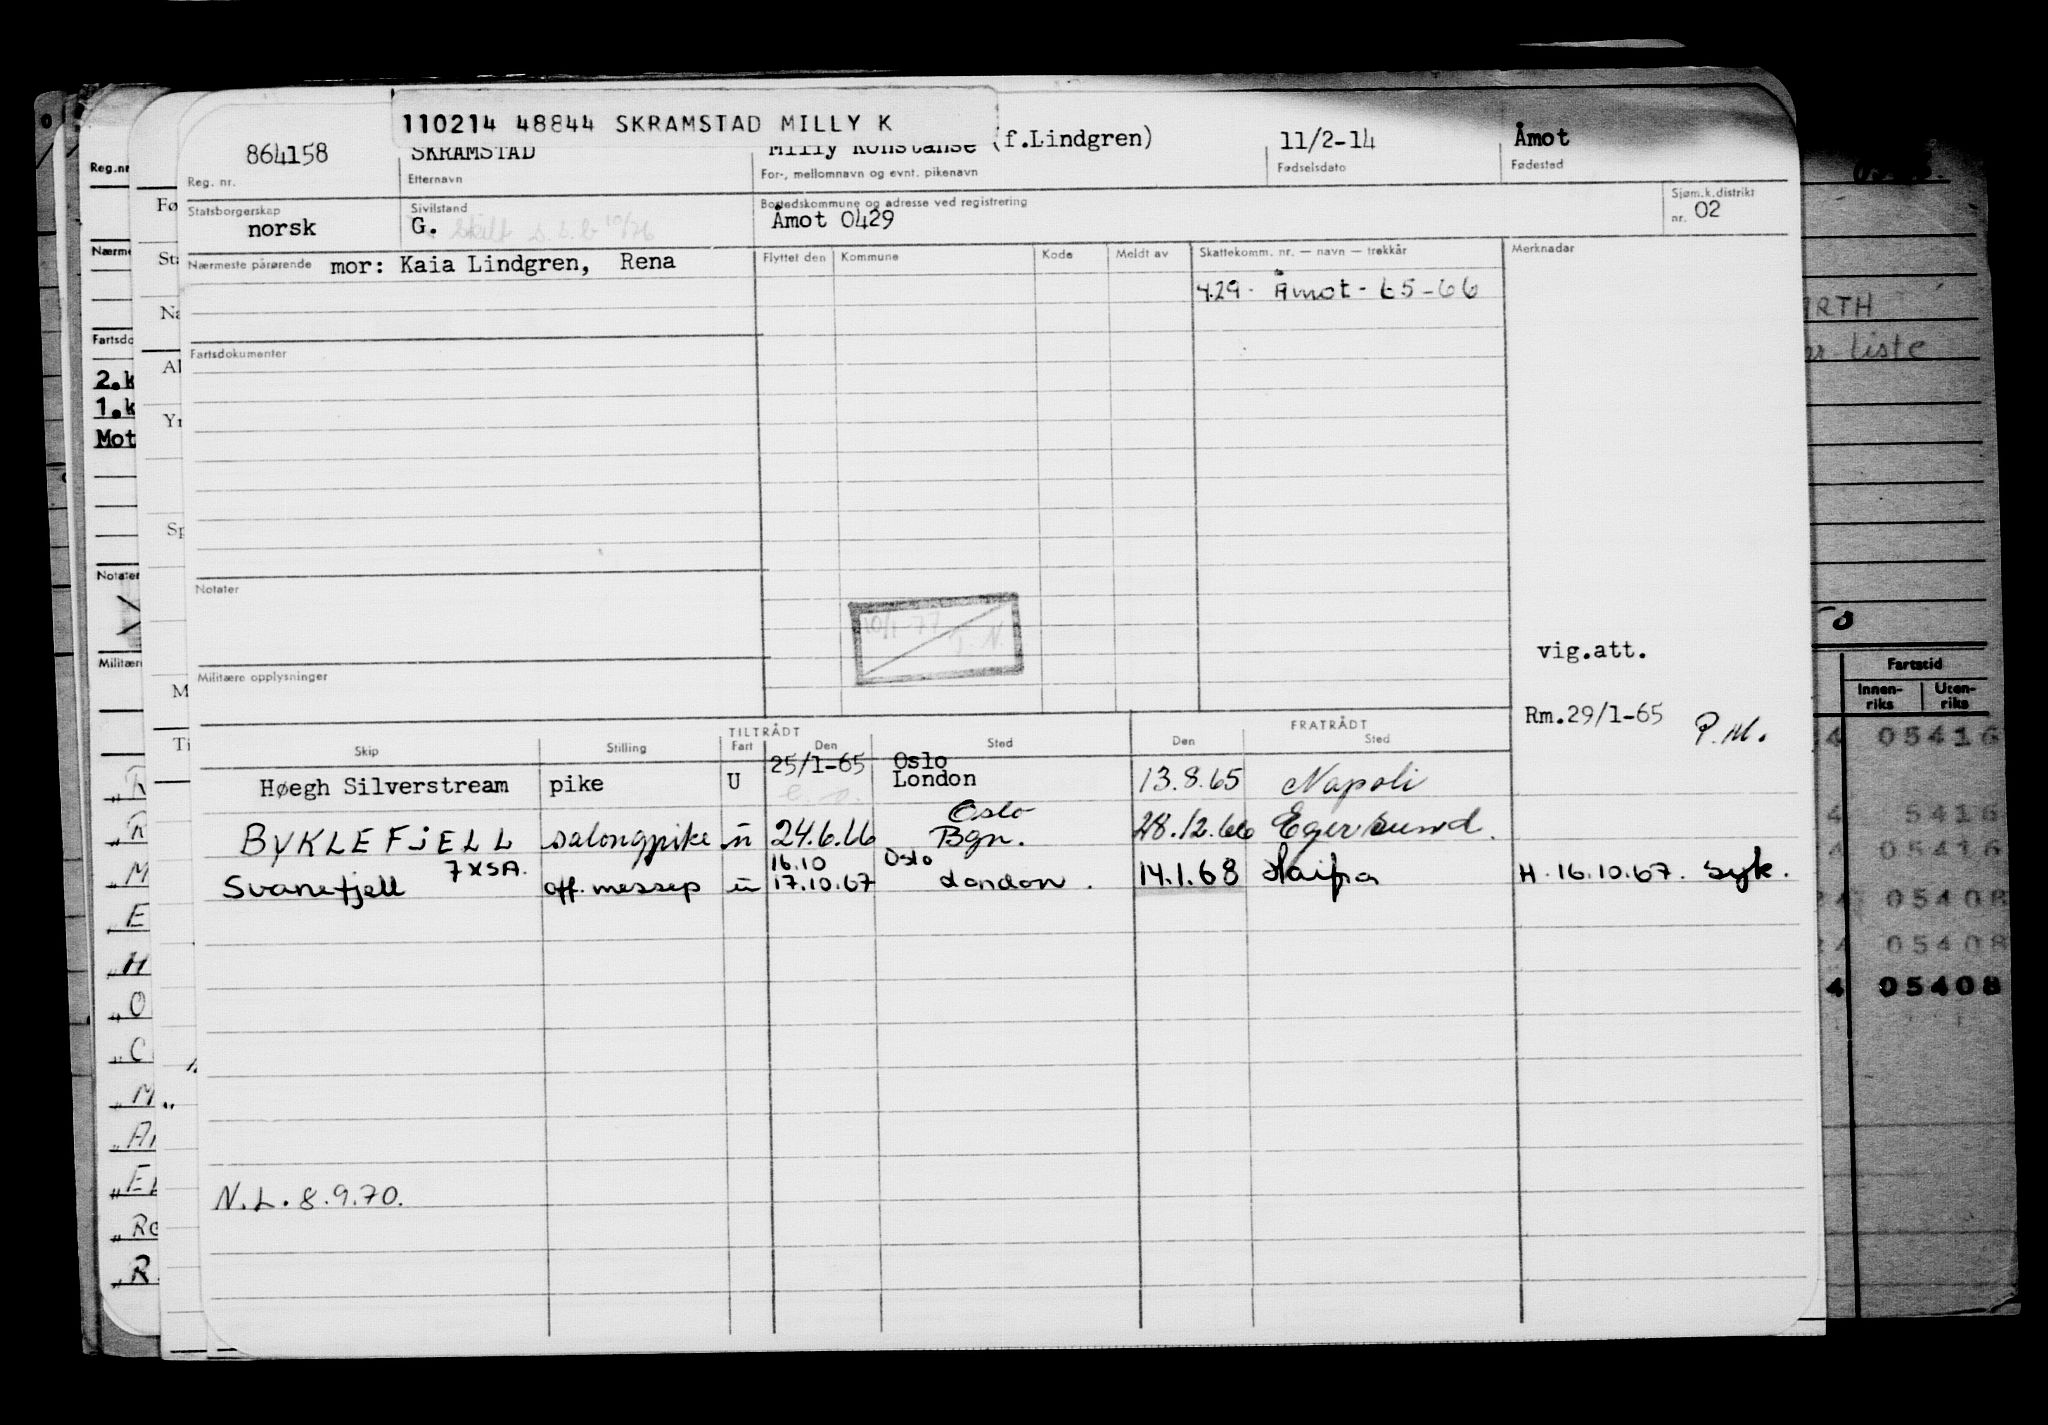 110214 48844 SKRAMSTAD MILLY K
864158 SKRAMSTAD Milly Konstanse (f.Lindgren) 11/2-14 Åmot
Reg. nr. Etternavn For-, mellomnavn og evnt. pikenavn Fødselsdato Fødested
Statsborgerskap Sivilstand Bostedskommune og adresse ved registrering Sjøm.k.distrikt
norsk G. Skilt 10/76 Åmot 0429 nr. 02
Nærmeste pårørende mor: Kaia Lindgren, Rena Flyttet den Kommune Kode Meldt av Skattekomm. nr. — navn — trekkår Merknader
429 - Åmot - 65-66
Fartsdokumenter
Notater
10/1-77 T.N.
vig.att.
Militære opplysninger
Rm.29/1-65 P.M.
TILTRÅDT FRATRÅDT
Skip Stilling Fart Den Sted Den Sted
25/1-65 Oslo
Høegh Silverstream pike U London 13.8.65 Napoli
Oslo
BYKLEFJELL salongpike u 24.6.66 Bgn. 28.12.66 Egersund.
7XSA. 16.10 Oslo
Svanefjell off. messep u 17.10.67 London. 14.1.68 Haifa H. 16.10.67. syk.
N.L. 8.9.70.
Reg.nr
Nærme
Fartsdo
2.k
1.k
Mot
Notater
Militæri
Fø
Sta
Na
Al
Yr
Sp
M
Ti
„R
„R
„M
„E
„H
„O
„C
„M
„A
„El
„Ro
„R
IRTH
liste
Fartstid
Innen-riks Uten-riks
4 05416
4 5416
4 05416
24 05408
24 05408
4 05408